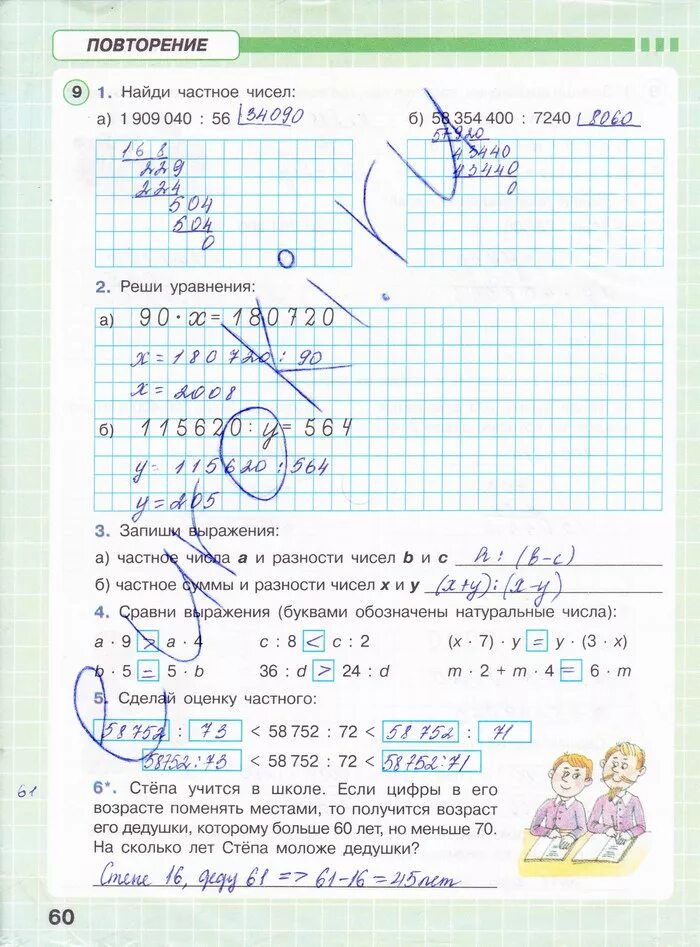 ПОВТОРЕНИЕ
9 1. Найди частное чисел:
а) 1 909 040 : 56 34090 б) 58 354 400 : 7240 8060
168 57920
229 43440
224 43440
504 0
504
0
2. Реши уравнения:
а) 90 · x = 180720
x = 180720 : 90
x = 2008
б) 115620 : y = 564
y = 115620 : 564
y = 205
3. Запиши выражения:
а) частное числа a и разности чисел b и c : (b-c)
б) частное суммы и разности чисел x и y (x+y):(x-y)
4. Сравни выражения (буквами обозначены натуральные числа):
a · 9 > a · 4 c : 8 < c : 2 (x · 7) · y = y · (3 · x)
b · 5 = 5 · b 36 : d > 24 : d m · 2 + m · 4 = 6 · m
5. Сделай оценку частного:
58752 : 73 < 58 752 : 72 < 58 752 : 71
58752:73 < 58 752 : 72 < 58752:71
6*. Стёпа учится в школе. Если цифры в его
61 возрасте поменять местами, то получится возраст
его дедушки, которому больше 60 лет, но меньше 70.
На сколько лет Стёпа моложе дедушки?
Степе 16, деду 61 => 61-16 = 45 лет
60